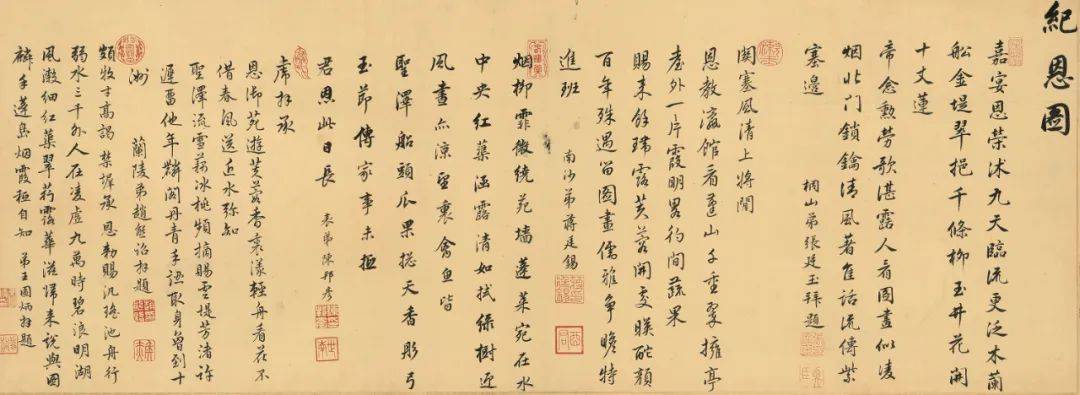 紀恩圖
嘉宴恩榮沐九天臨流更泛木蘭
船金堤翠挹千條柳玉井花開
十丈蓮
帝念勲勞歌湛露人看圖畫似凌
烟北門鎖鑰清風著佳話流傳紫
塞邊
桐山弟張廷玉拜題
関塞風清上將閒
恩教瀛館看蓬山千重翠擁亭
臺外一片霞明畧彴間蔬果
賜来餘瑞露芙蓉開處映酡顔
百年殊遇留圖畫儒雅争瞻特
進班
南沙弟蔣廷錫
烟柳霏微繞苑墙蓬莱宛在水
中央紅蕖涵露清如拭緑樹迎
風晝亦涼望裏禽魚皆
聖澤船頭瓜果揔天香彤弓
玉節傳家事未極
君恩此日長
表弟陳邦彦
虔拜承
恩御苑遊芙蓉香裏漾輕舟看花不
借春風送近水弥知
聖澤流雪藕冰桃頻摘賜雲堤芳渚許
遲留他年麟閣丹青手認取身曾到十
洲
蘭陵弟趙熊詔拜題
頗牧才高謁禁墀承恩勅賜汎瑤池舟行
弱水三千外人在凌虚九萬時碧浪明湖
風激細紅蕖翠荇露華滋歸来說與圖
麟手蓬島烟霞秪自知 弟王圖炳拜題